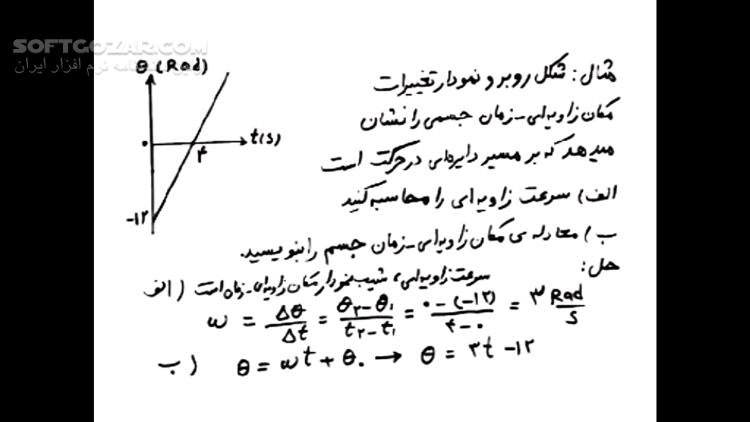 SOFTGOZAR.COM
θ (Rad)
t(s)
۰
۴
-۱۲
مثال: شکل روبرو نمودار تغییرات
مکان زاویه‌ای-زمان جسمی را نشان
میدهد که بر مسیر دایره‌ای در حرکت است
الف) سرعت زاویه‌ای را محاسبه کنید
ب) معادله‌ی مکان زاویه‌ای-زمان جسم را بنویسید.
حل:
الف) سرعت زاویه‌ای، شیب نمودار مکان زاویه‌ای-زمان است
ω = Δθ/Δt = θ۲-θ۱/t۲-t۱ = ۰-(-۱۲)/۴-۰ = ۳ Rad/s
ب) θ = ωt + θ۰ → θ = ۳t -۱۲